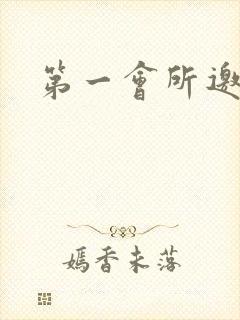 第一會所邀
嫣香未落